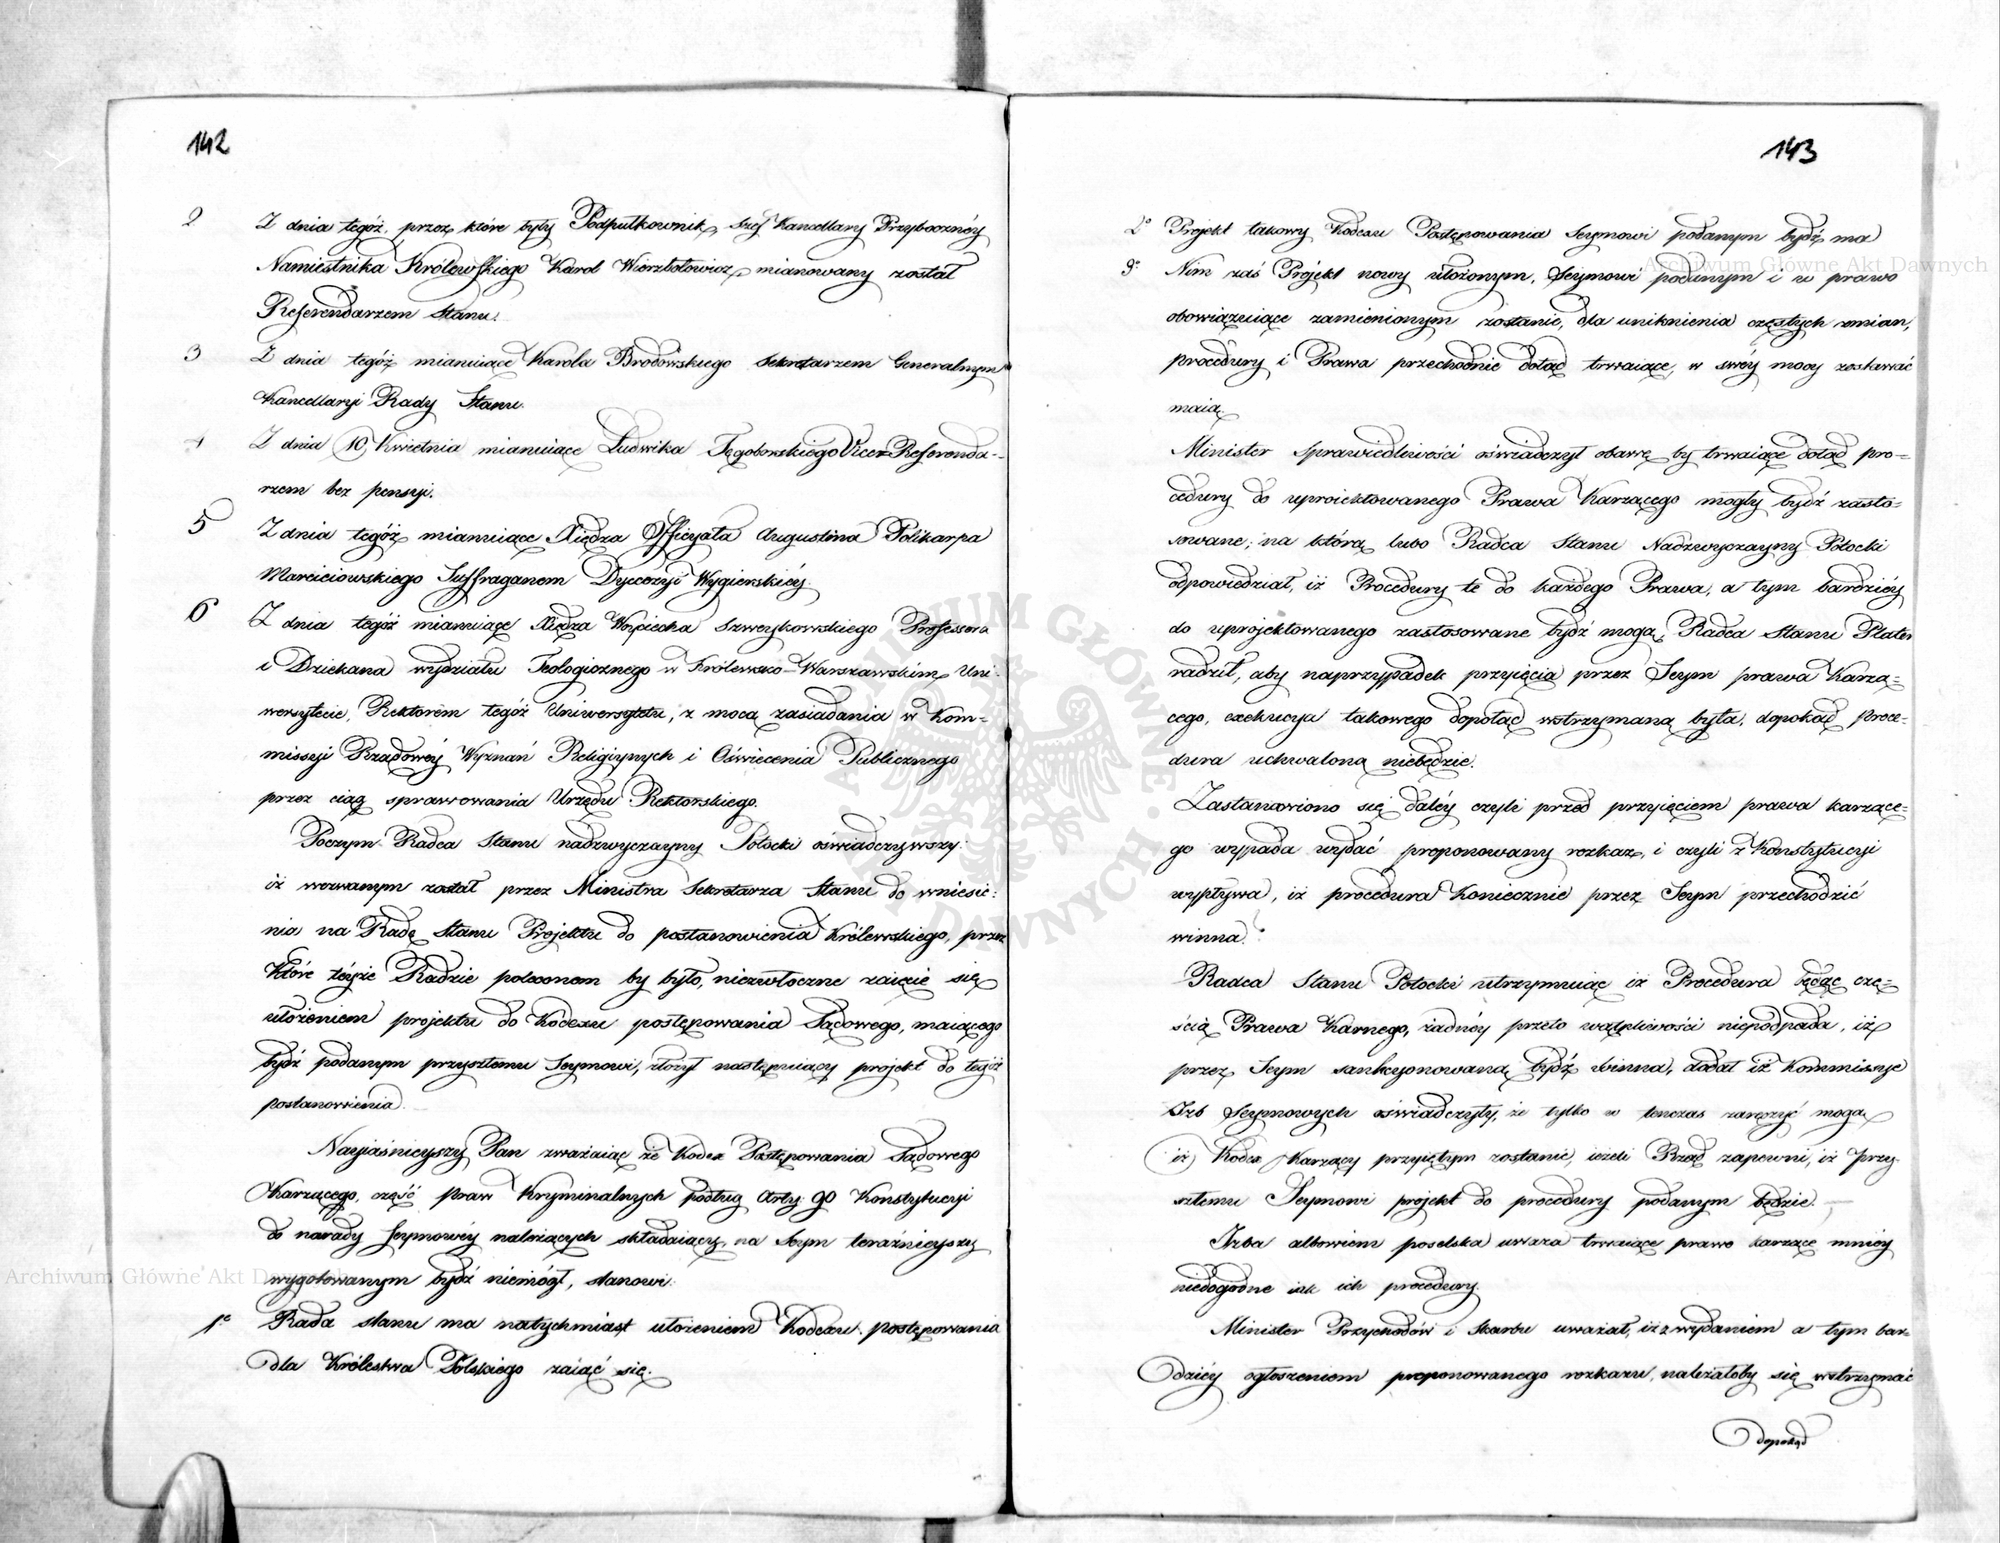 142
2 Z dnia tegóż, przez które były Podpułkownik, Szef Kancellaryi Przyboczney
Namiestnika Królewskiego Karol Wierzbołowicz, mianowany został
Referendarzem Stanu.
3 Z dnia tegóż mianuiące Karola Brodowskiego Sekretarzem Generalnym
Kancellaryi Rady Stanu.
4 Z dnia 10 Kwietnia mianuiące Ludwika Tęgoborskiego Vice-Referenda-
rzem bez pensyi.
5 Z dnia tegóż mianuiące Xiędza Officyała Augustina Polikarpa
Marciejowskiego Suffraganem Dyecezyi Wygierskiéy.
6 Z dnia tegóż mianuiące Xiędza Woyciecha Szweykowskiego Professora
i Dziekana wydziału Teologicznego w Królewsko-Warszawskim Uni-
wersytecie, Rektorem tegóż Uniwersytetu, z mocą zasiadania w Kom-
missyi Rządowéy Wyznań Religiynych i Oświecenia Publicznego
przez ciąg sprawowania Urzędu Rektorskiego.
Poczym Radca Stanu nadzwyczayny Potocki oświadczywszy:
iż wezwanym został przez Ministra Sekretarza Stanu do wniesie-
nia na Radę Stanu Projektu do postanowienia Królewskiego, przez
które téyże Radzie poleconem by było, niezwłoczne zaięcie się
ułożeniem projektu do Kodexu postępowania Sądowego, maiącego
bydź podanym przyszłemu Seymowi, złożył następuiący projekt do tegóż
postanowienia.
Nayiaśnieyszy Pan zważaiąc że Kodex Postępowania Sądowego
Karzącego, część praw Kryminalnych podług Arty: 90 Konstytucyi
do narady Seymowéy należących składaiący, na Seym teraźnieyszy
wygotowanym bydź niemógł, stanowi:
1e Rada stanu ma natychmiast ułożeniem Kodexu postępowania
dla Królestwa Polskiego zaiąć się.
143
2e Projekt takowy Kodexu Postępowania Seymowi podanym bydź ma
3e Nim zaś Projekt nowy ułożonym, Seymowi podanym i w prawo
obowiązuiące zamienionym zostanie, dla uniknienia częstych zmian,
procedury i Prawa przechodnie dotąd trwaiące, w swéy mocy zostawać
maią.
Minister Sprawiedliwości oświadczył obawę by trwaiące dotąd pro-
cedury do uproiektowanego Prawa Karzącego mogły bydź zasto-
sowane; na którą lubo Radca Stanu Nadzwyczayny Potocki
odpowiedział, iż Procedury te do każdego Prawa, a tym bardziéy
do uprojektowanego zastosowane bydź mogą, Radca Stanu Plater
radził, aby naprzypadek przyięcia przez Seym prawa Karzą-
cego, exekucya takowego dopotąd wstrzymaną była, dopokąd proce-
dura uchwaloną niebędzie.
Zastanowiono się daléy czyli przed przyięciem prawa karzące-
go wypada wydać proponowany rozkaz, i czyli z Konstytucyi
wypływa, iż procedura Koniecznie przez Seym przechodzić
winna?
Radca Stanu Potocki utrzymuiąc iż Procedura będąc czę-
ścią Prawa Karnego, żadnéy przeto wątpliwości niepodpada, iż
przez Seym sankcyonowaną bydź winna, dodał iż Kommissye
Izb Seymowych oświadczyły, że tylko w tenczas zaręczyć mogą
iż Kodex Karzący przyiętym zostanie, ieżeli Rząd zapewni, iż Przy-
szłemu Seymowi projekt do procedury podanym będzie.
Izba albowiem poselska uważa trwaiące prawo karzące mniéy
niedogodne iak ich procedury.
Minister Przychodów i Skarbu uważał, iż z wydaniem a tym bar-
dziéy ogłoszeniem proponowanego rozkazu, należałoby się wstrzymać
dopokąd
Archiwum Główne Akt Dawnych
Archiwum Główne Akt Dawnych
ARCHIWUM GŁÓWNE AKT DAWNYCH